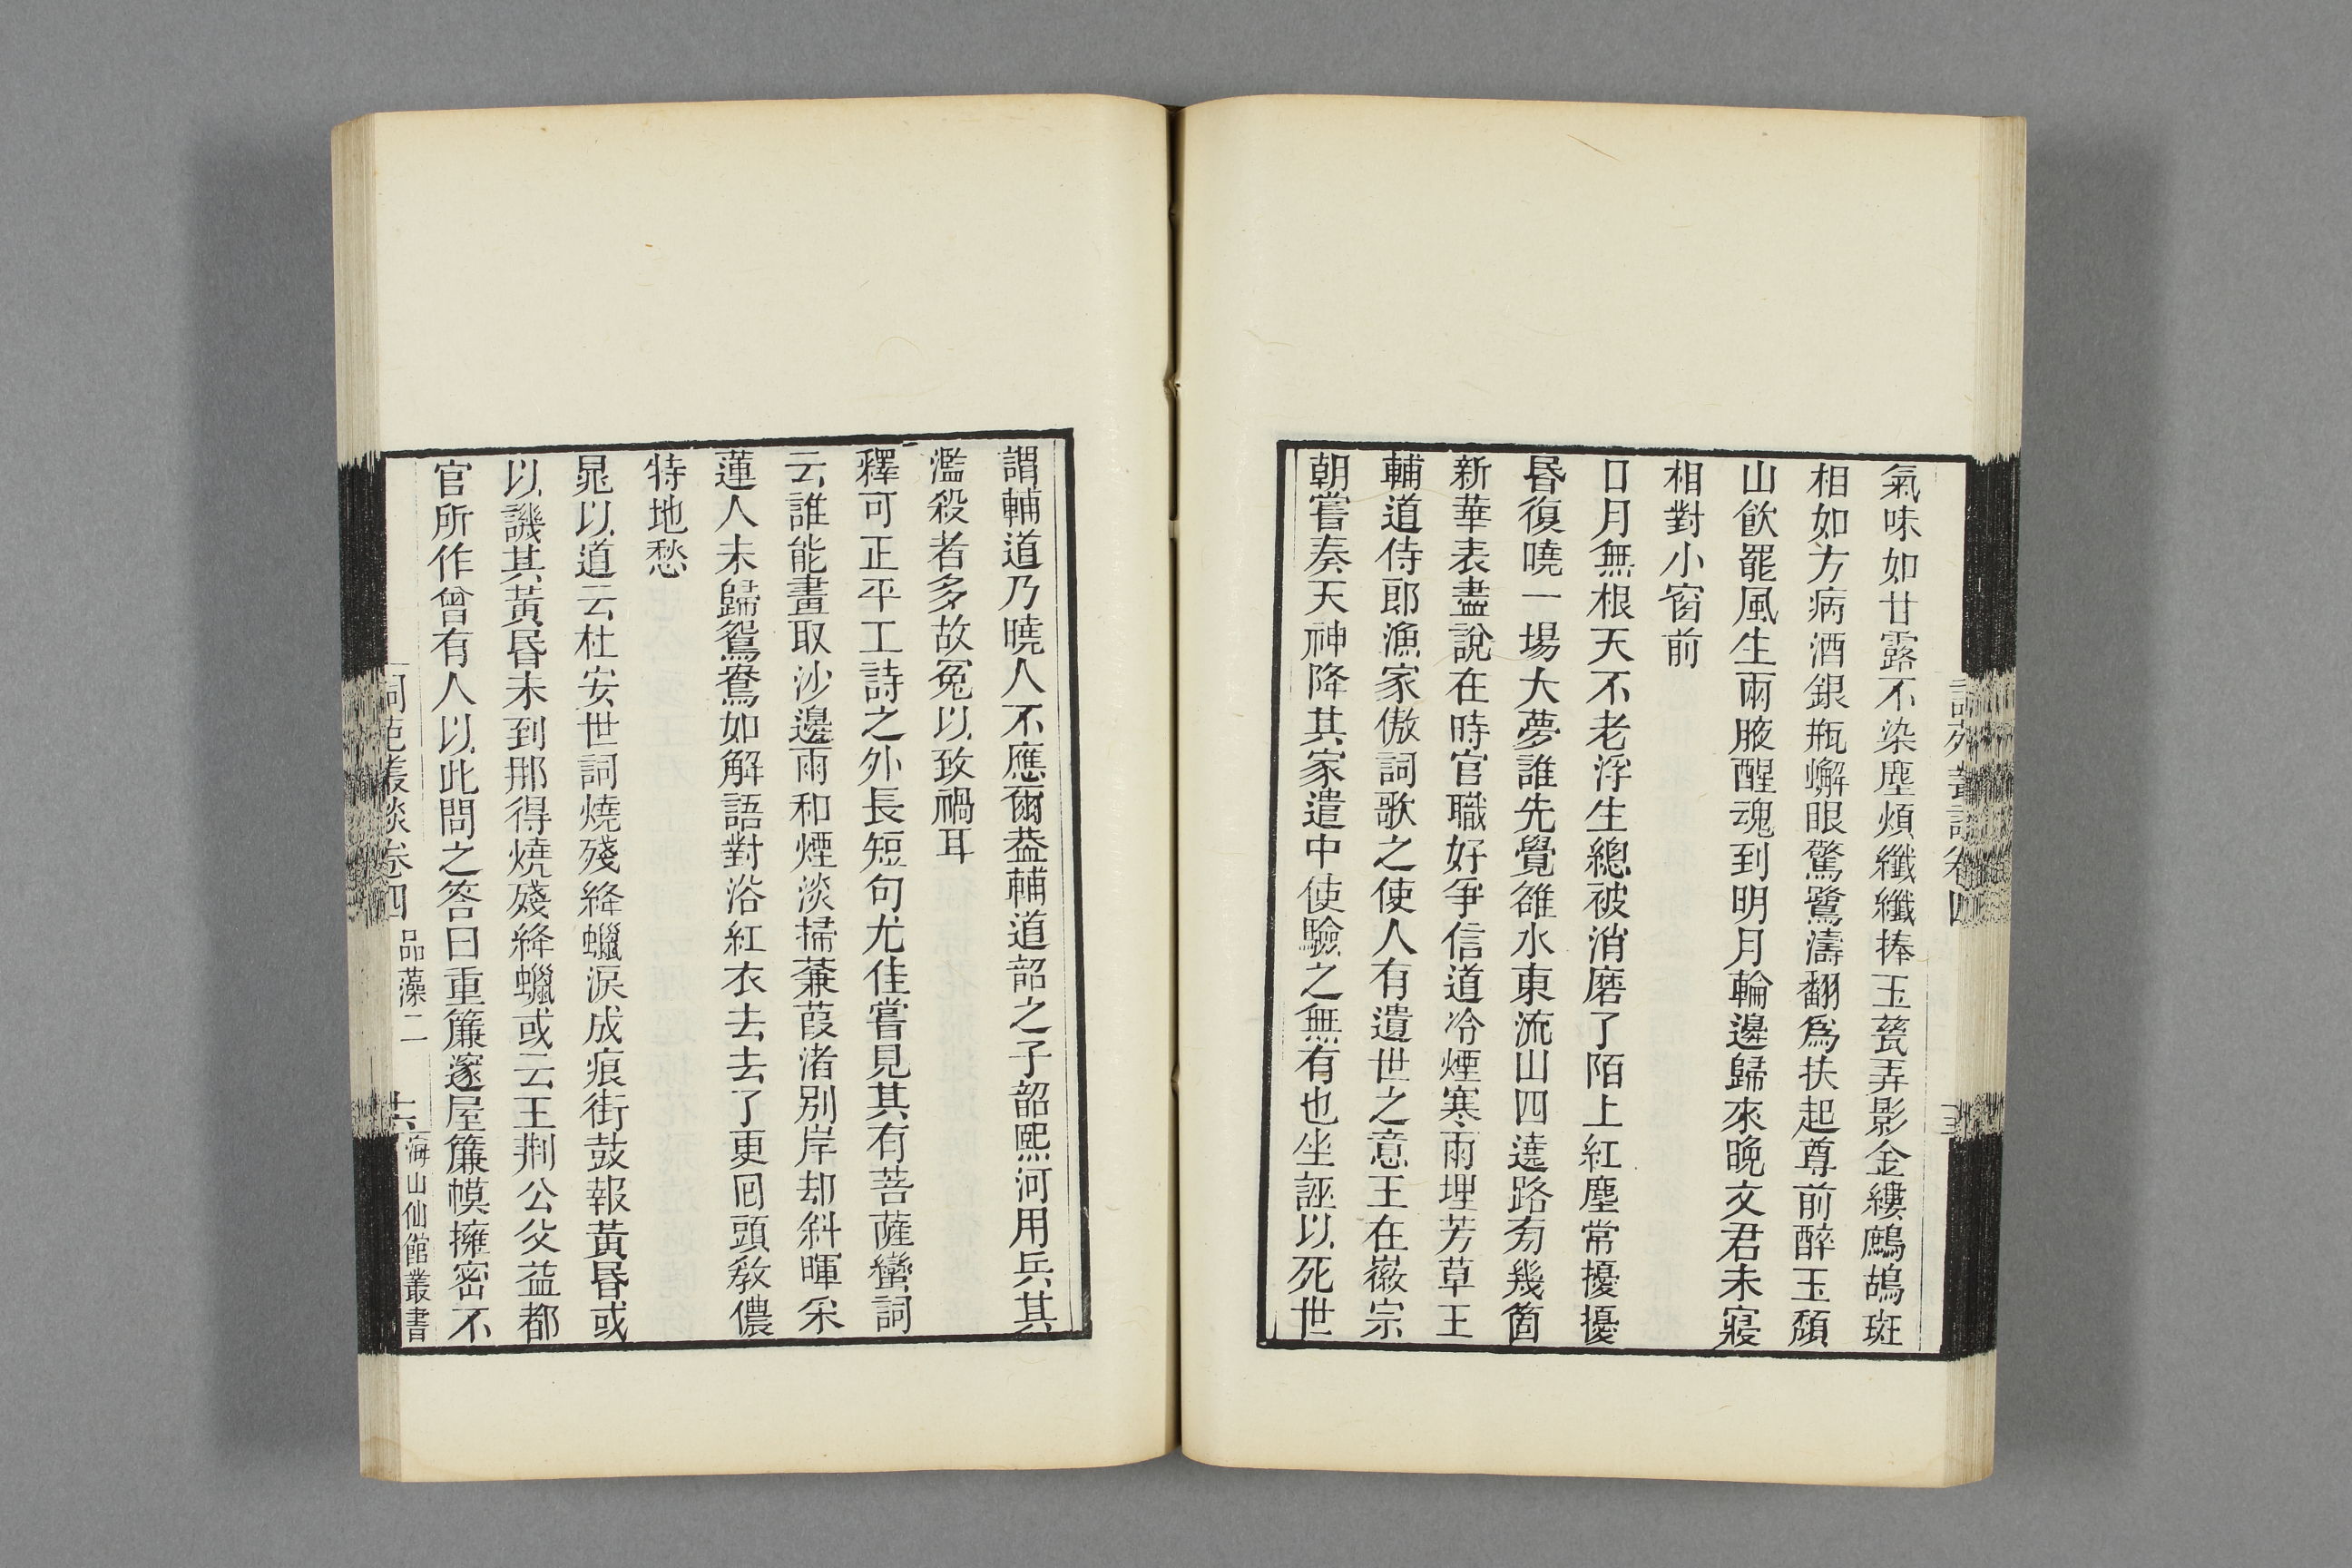 氣味如甘露不染塵煩纖纖捧玉甆弄影金縷鷓鴣斑
相如方病酒銀瓶蠏眼驚鷺濤翻爲扶起尊前醉玉頹
山飲罷風生兩腋醒魂到明月輪邊歸來晚文君未寢
相對小窗前
日月無根天不老浮生總被消磨了陌上紅塵常擾擾
昬復曉一場大夢誰先覺雒水東流山四遶路旁幾箇
新華表盡說在時官職好爭信道冷煙寒雨埋芳草王
輔道侍郎漁家傲詞歌之使人有遺世之意王在徽宗
朝嘗奏天神降其家遣中使驗之無有也坐誣以死世
謂輔道乃曉人不應爾葢輔道韶之子韶熙河用兵其
濫殺者多故冤以致禍耳
釋可正平工詩之外長短句尤佳嘗見其有菩薩蠻詞
云誰能畫取沙邊雨和煙淡掃蒹葭渚別岸却斜暉采
蓮人未歸鴛鴦如解語對浴紅衣去去了更回頭敎儂
特地愁
晁以道云杜安世詞燒殘絳蠟淚成痕街鼓報黃昬或
以譏其黃昬未到那得燒殘絳蠟或云王荆公父益都
官所作曾有人以此問之答曰重簾邃屋簾幙擁密不
詞苑叢談卷四 品藻二 十六 海山仙館叢書